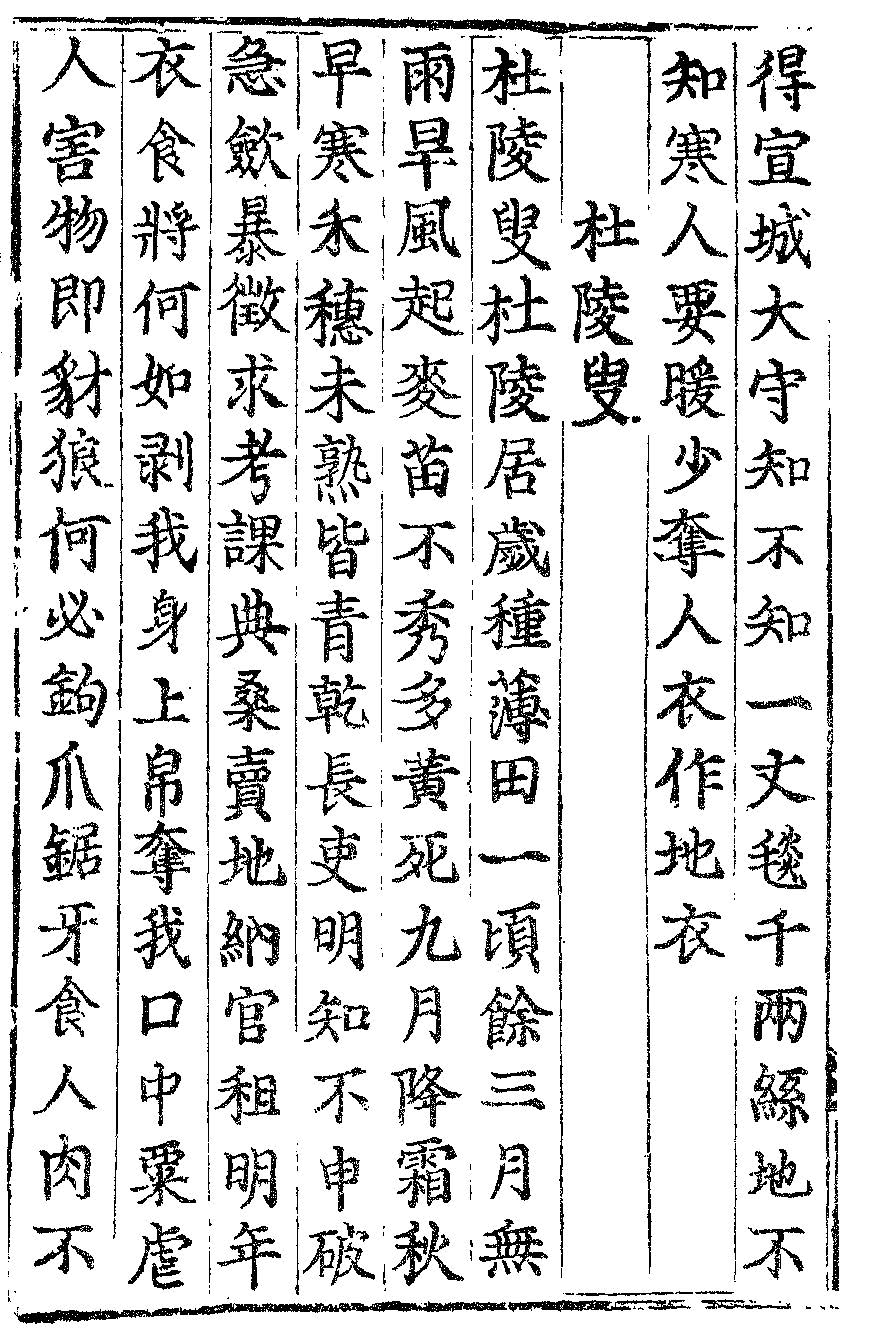 得宣城大守知不知一丈毯千兩絲地不
知寒人要暖少奪人衣作地衣
杜陵叟
杜陵叟杜陵居歲種薄田一頃餘三月無
雨旱風起麥苗不秀多黃死九月降霜秋
早寒禾穗未熟皆青乾長吏明知不申破
急歛暴徵求考課典桑賣地納官租明年
衣食將何如剥我身上帛奪我口中粟虐
人害物即豺狼何必鉤爪鋸牙食人肉不